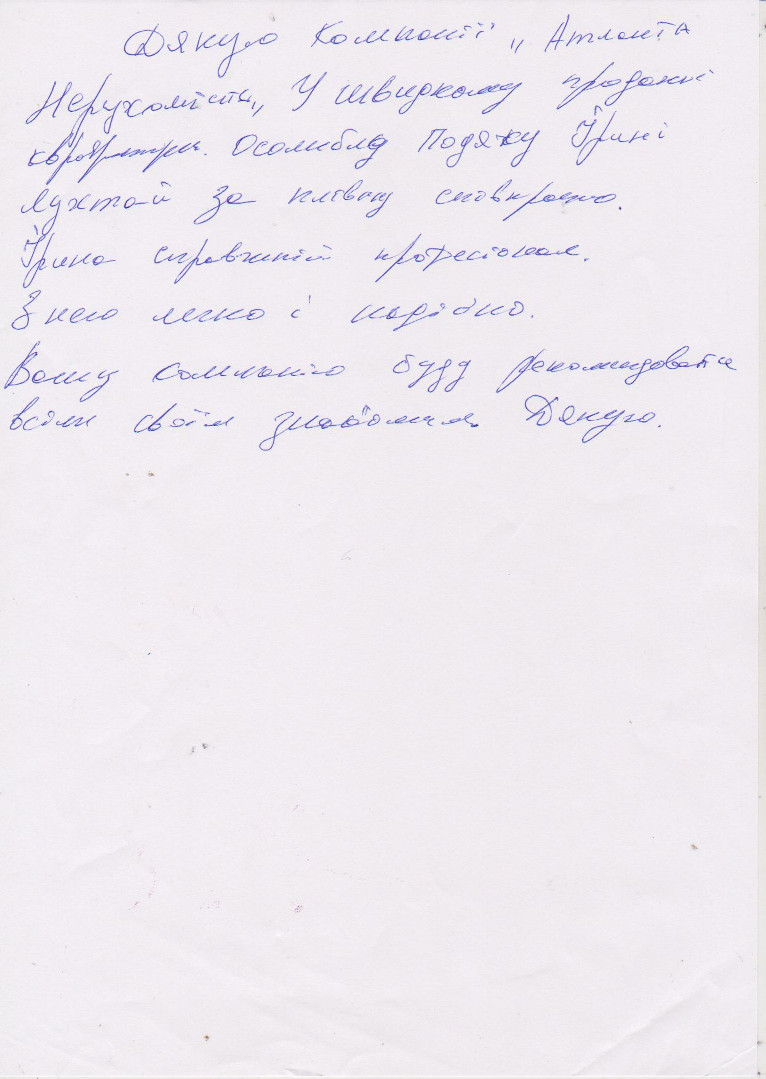 Дякую компанії „Атланта
Нерухомість„ У швидкому продажі
квартири. Особливо подяку Ірині
за плівну співпрацю.
Ірина справжній професіонал.
З нею легко і надійно.
Вашу компанію буду рекомендовати
всім своїм знайомим. Дякую.